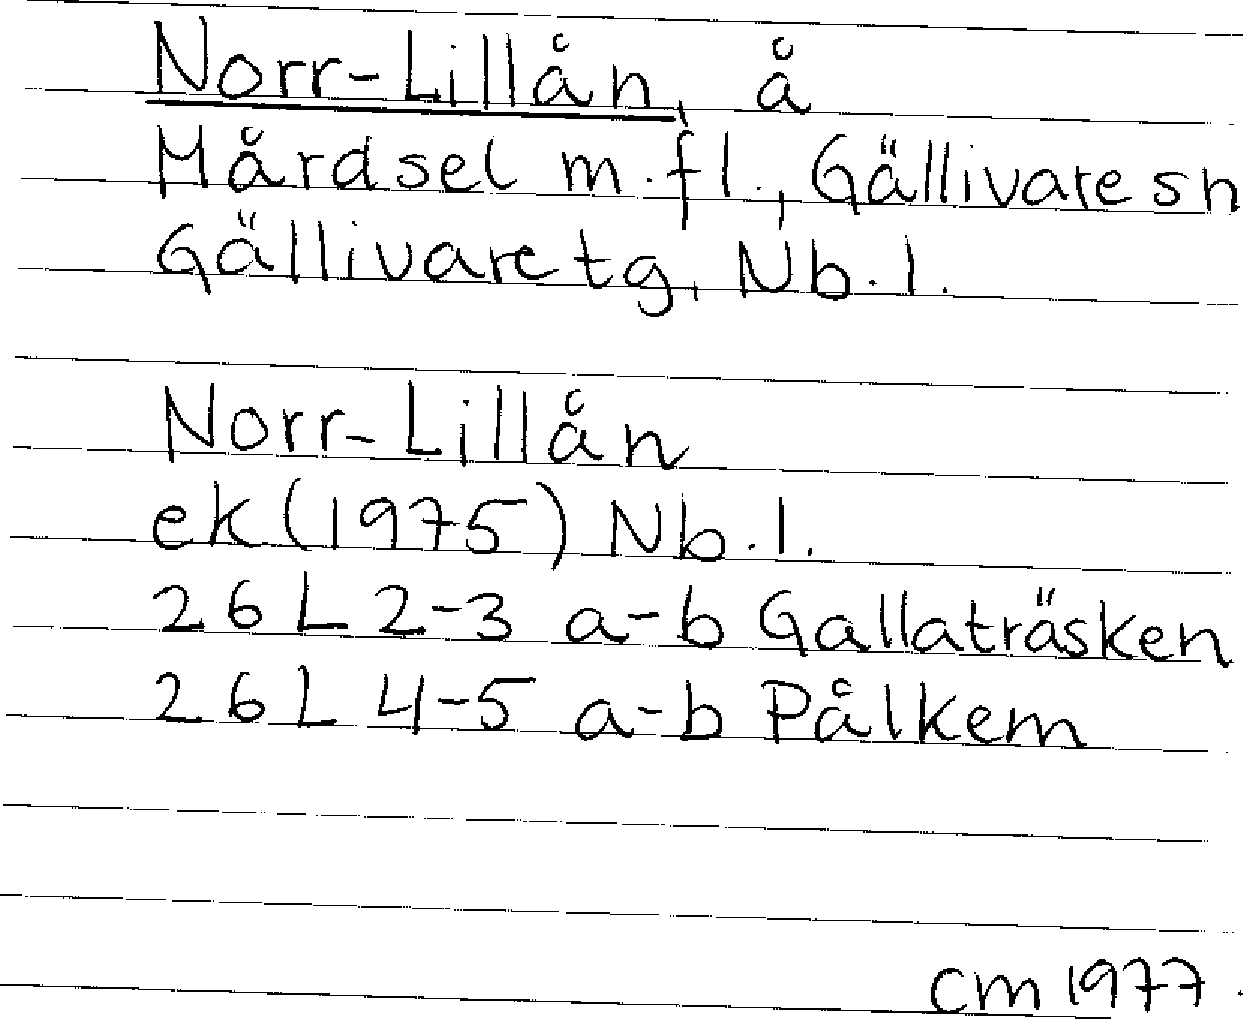 Norr-Lillån, å
Mårdsel m.fl., Gällivare sn
Gällivare tg, Nb.l.
Norr-Lillån
ek (1975) Nb.l.
26 L 2-3 a-b Gallaträsken
26 L 4-5 a-b Pålkem
cm 1977.